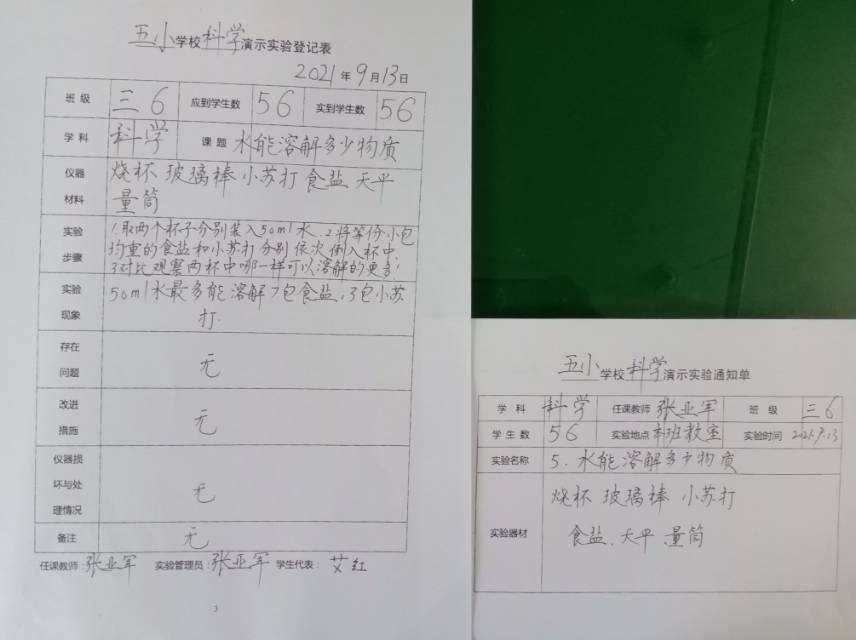 五小学校科学演示实验登记表
2021年9月13日
班级 三6 应到学生数 56 实到学生数 56
学科 科学 课题 水能溶解多少物质
仪器材料 烧杯 玻璃棒 小苏打 食盐 天平
量筒
实验步骤 1.取两个杯子分别装入50ml水、2将等份小包
均重的食盐和小苏打分别依次倒入杯中
3对比观察两杯中哪一样可以溶解的更多!
实验现象 50ml水最多能溶解7包食盐,3包小苏
打.
存在问题 无
改进措施 无
仪器损坏与处理情况 无
备注 无
任课教师:张亚军 实验管理员:张亚军 学生代表: 艾红
3
五小学校科学演示实验通知单
学科 科学 任课教师 张亚军 班级 三6
学生数 56 实验地点 本班教室 实验时间 2021.9.13
实验名称 5.水能溶解多少物质
实验器材 烧杯 玻璃棒 小苏打
食盐、天平、量筒